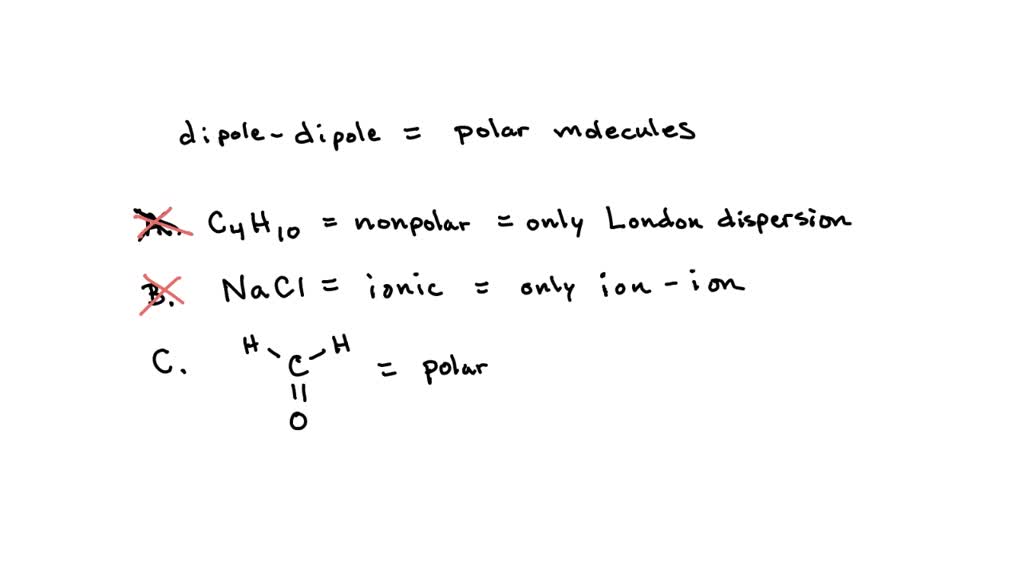 dipole-dipole = polar molecules
A. C4H10 = nonpolar = only London dispersion
B. NaCl = ionic = only ion-ion
H H
C. C = polar
O